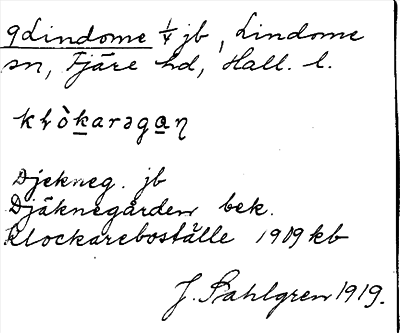 9 Lindome 1/4 jb, Lindome
sn, Fjäre hd, Hall. l.
klò̱karəga̱ɳ
Djekneg. jb
Djäknegården bek.
Klockareboställe 1909 kb
J. Sahlgren 1919.